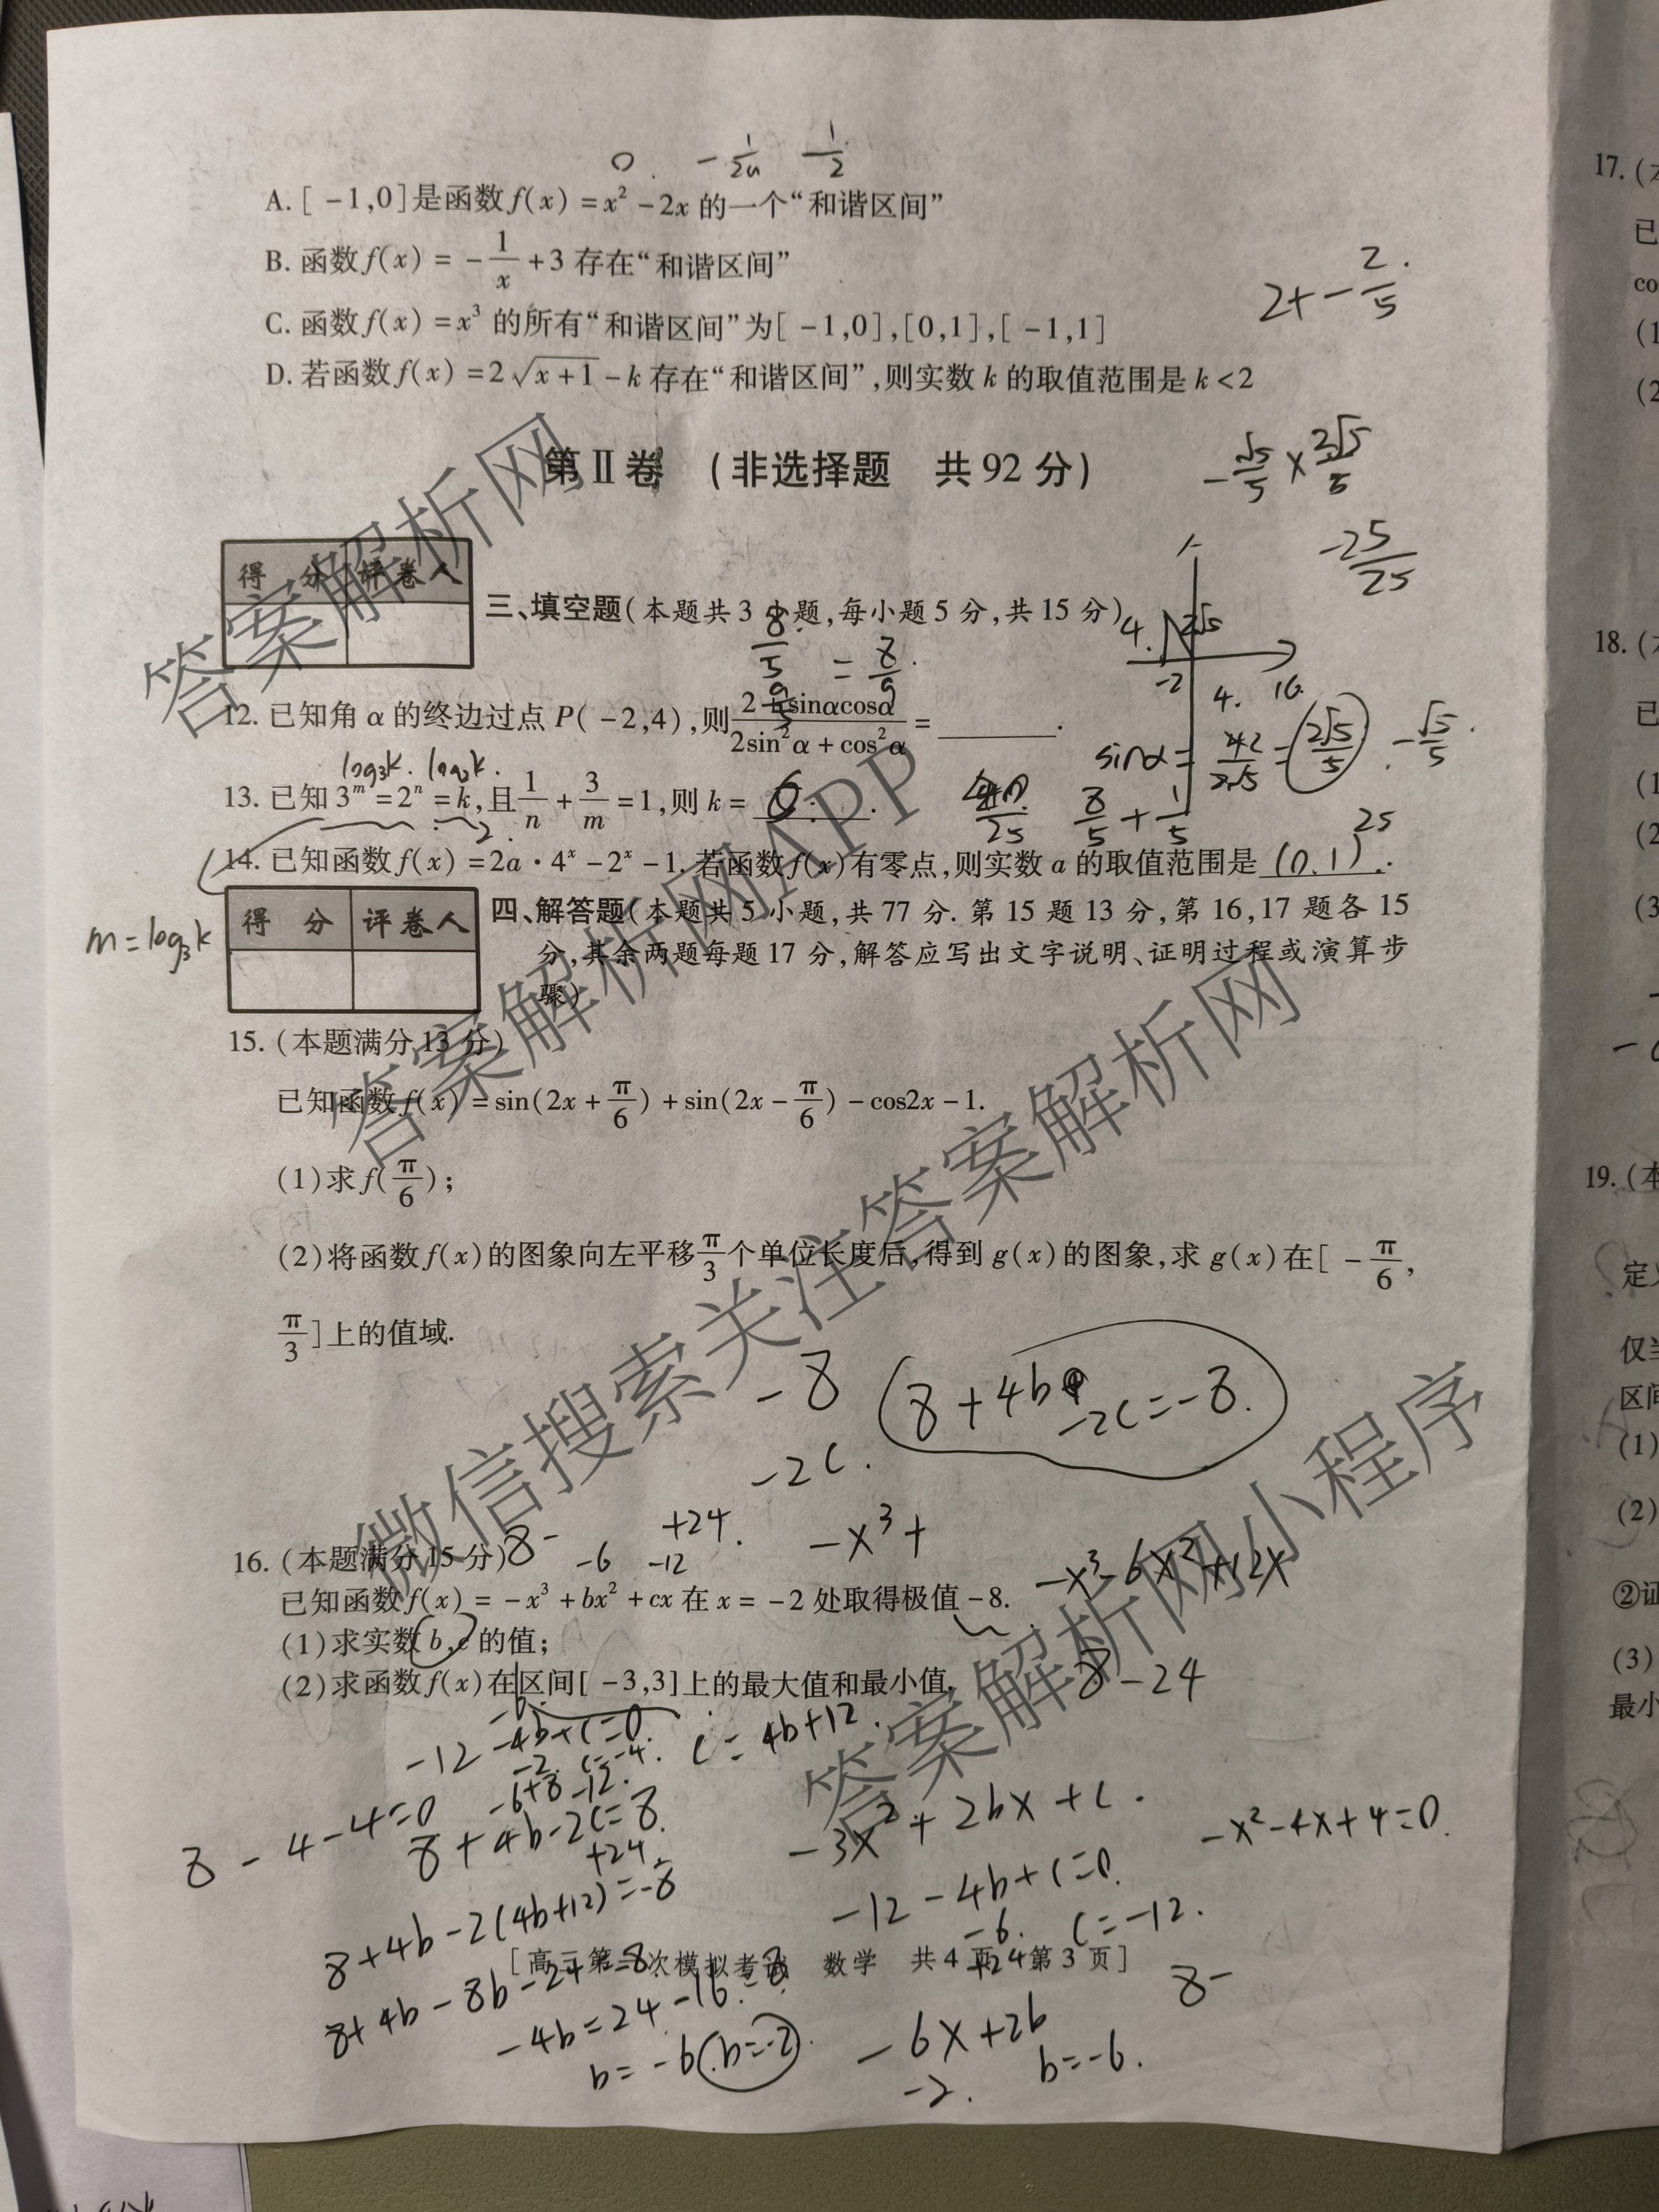 0. -1/2a -1/2
A. [ -1,0]是函数f(x) =x² -2x的一个“和谐区间”
B. 函数f(x) = -1/x +3存在“和谐区间”
2+-2/5.
C. 函数f(x) =x³的所有“和谐区间”为[ -1,0],[0,1],[ -1,1]
D. 若函数f(x) =2√(x+1) -k存在“和谐区间”,则实数k的取值范围是k<2
第Ⅱ卷 (非选择题 共92分)
-√5/5 × 2√5/5
-25/25
得 分 评卷人
三、填空题(本题共3小题,每小题5分,共15分)
4. 2√5
-2
8/5 = 8/9.
9/5
4. 16
12. 已知角α的终边过点P( -2,4),则(2+sinαcosα)/(2sin²α+cos²α) = ______.
sinα= = 2√5/5. -√5/5.
log₃k. log₂k.
13. 已知3ᵐ=2ⁿ=k,且1/n + 3/m =1,则k= 6.
8/5 + 1/5
25
14. 已知函数f(x) =2a·4ˣ -2ˣ -1. 若函数f(x)有零点,则实数a的取值范围是 (0,1).
m=log₃k
得 分 评卷人
四、解答题(本题共5小题,共77分. 第15题13分,第16,17题各15
分,其余两题每题17分,解答应写出文字说明、证明过程或演算步
骤)
15. (本题满分13分)
已知函数f(x) =sin(2x+π/6) +sin(2x-π/6) -cos2x-1.
(1)求f(π/6);
(2)将函数f(x)的图象向左平移π/3个单位长度后,得到g(x)的图象,求g(x)在[ -π/6,
π/3]上的值域.
-8
8+4b -2c=-8.
-2c.
16. (本题满分15分)
8-
-6 -12
+24.
-x³+
-x³-6x²+12x
已知函数f(x) = -x³+bx²+cx在x= -2处取得极值-8.
(1)求实数b,c的值;
(2)求函数f(x)在区间[ -3,3]上的最大值和最小值.
8-24
-12-4b+c=0.
-2. c=-4.
c=4b+12.
-6+8 -12.
8-4-4=0
8+4b-2c=8.
+24
-3x²+2bx+c.
-x²-4x+4=0.
8+4b-2(4b+12)=-8
-12-4b+c=0.
-6. c=-12.
[高三第 次模拟考试 数学 共4页 第3页]
+24
8-
8+4b-8b-24=-8
-4b=24-16.=8
b=-6 b=-2.
-6x+2b
-2.
b=-6.
17. (本
已
co
(1
(2
18. (本
已
(1
(2
(3
19. (本
定义
仅当
区间
(1)
(2)
②证
(3)
最小
答案解析网
答案解析网APP
微信搜索关注答案解析网
答案解析网小程序